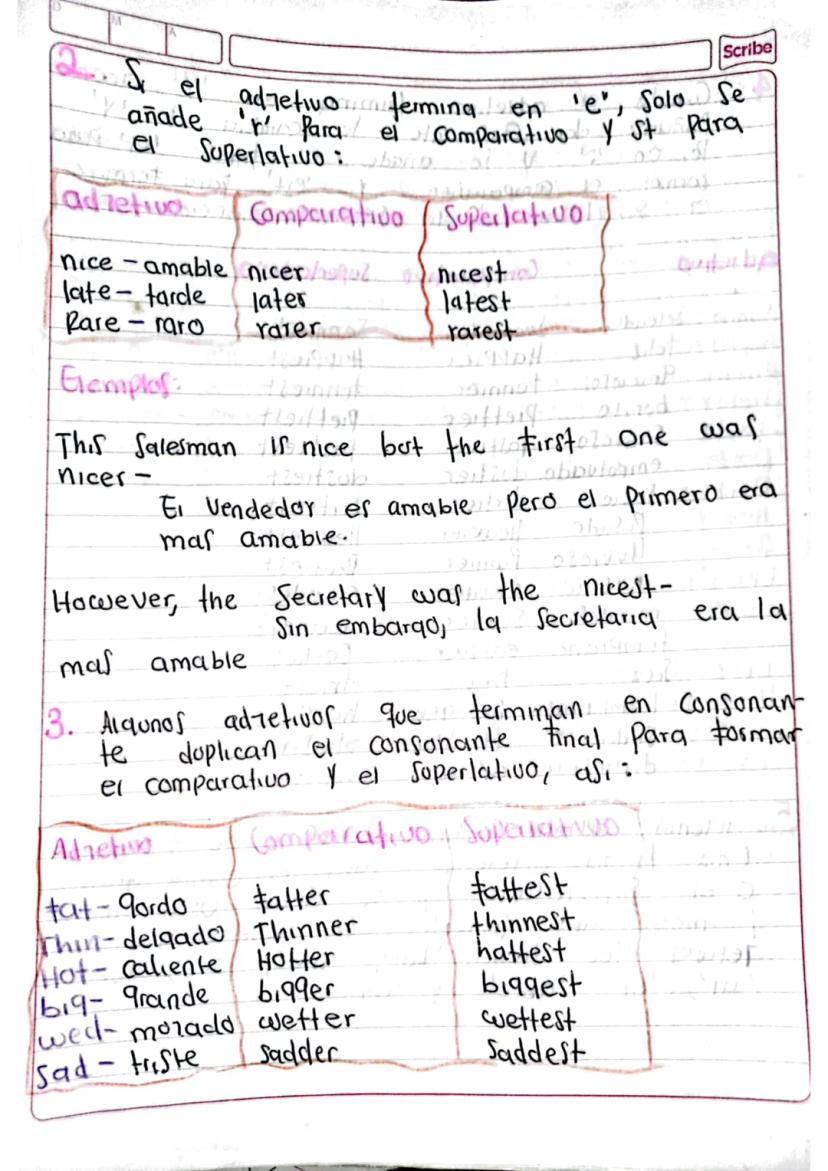 D M A
Scribe
2. Si el adjetivo termina en 'e', solo se
añade 'r' para el comparativo y st para
el superlativo:
adjetivo Comparativo Superlativo
nice - amable nicer nicest
late - tarde later latest
Rare - raro rarer rarest
Ejemplos:
This salesman is nice but the first one was
nicer -
El vendedor es amable pero el primero era
mas amable.
However, the secretary was the nicest-
Sin embargo, la secretaria era la
mas amable
3. Algunos adjetivos que terminan en consonan-
te duplican el consonante final para formar
el comparativo y el superlativo, asi:
Adjetivo Comparativo Superlativo
fat - gordo fatter fattest
Thin - delgado Thinner thinnest
Hot - caliente Hotter hattest
big - grande bigger biggest
wed - morado wetter wettest
sad - triste sadder saddest